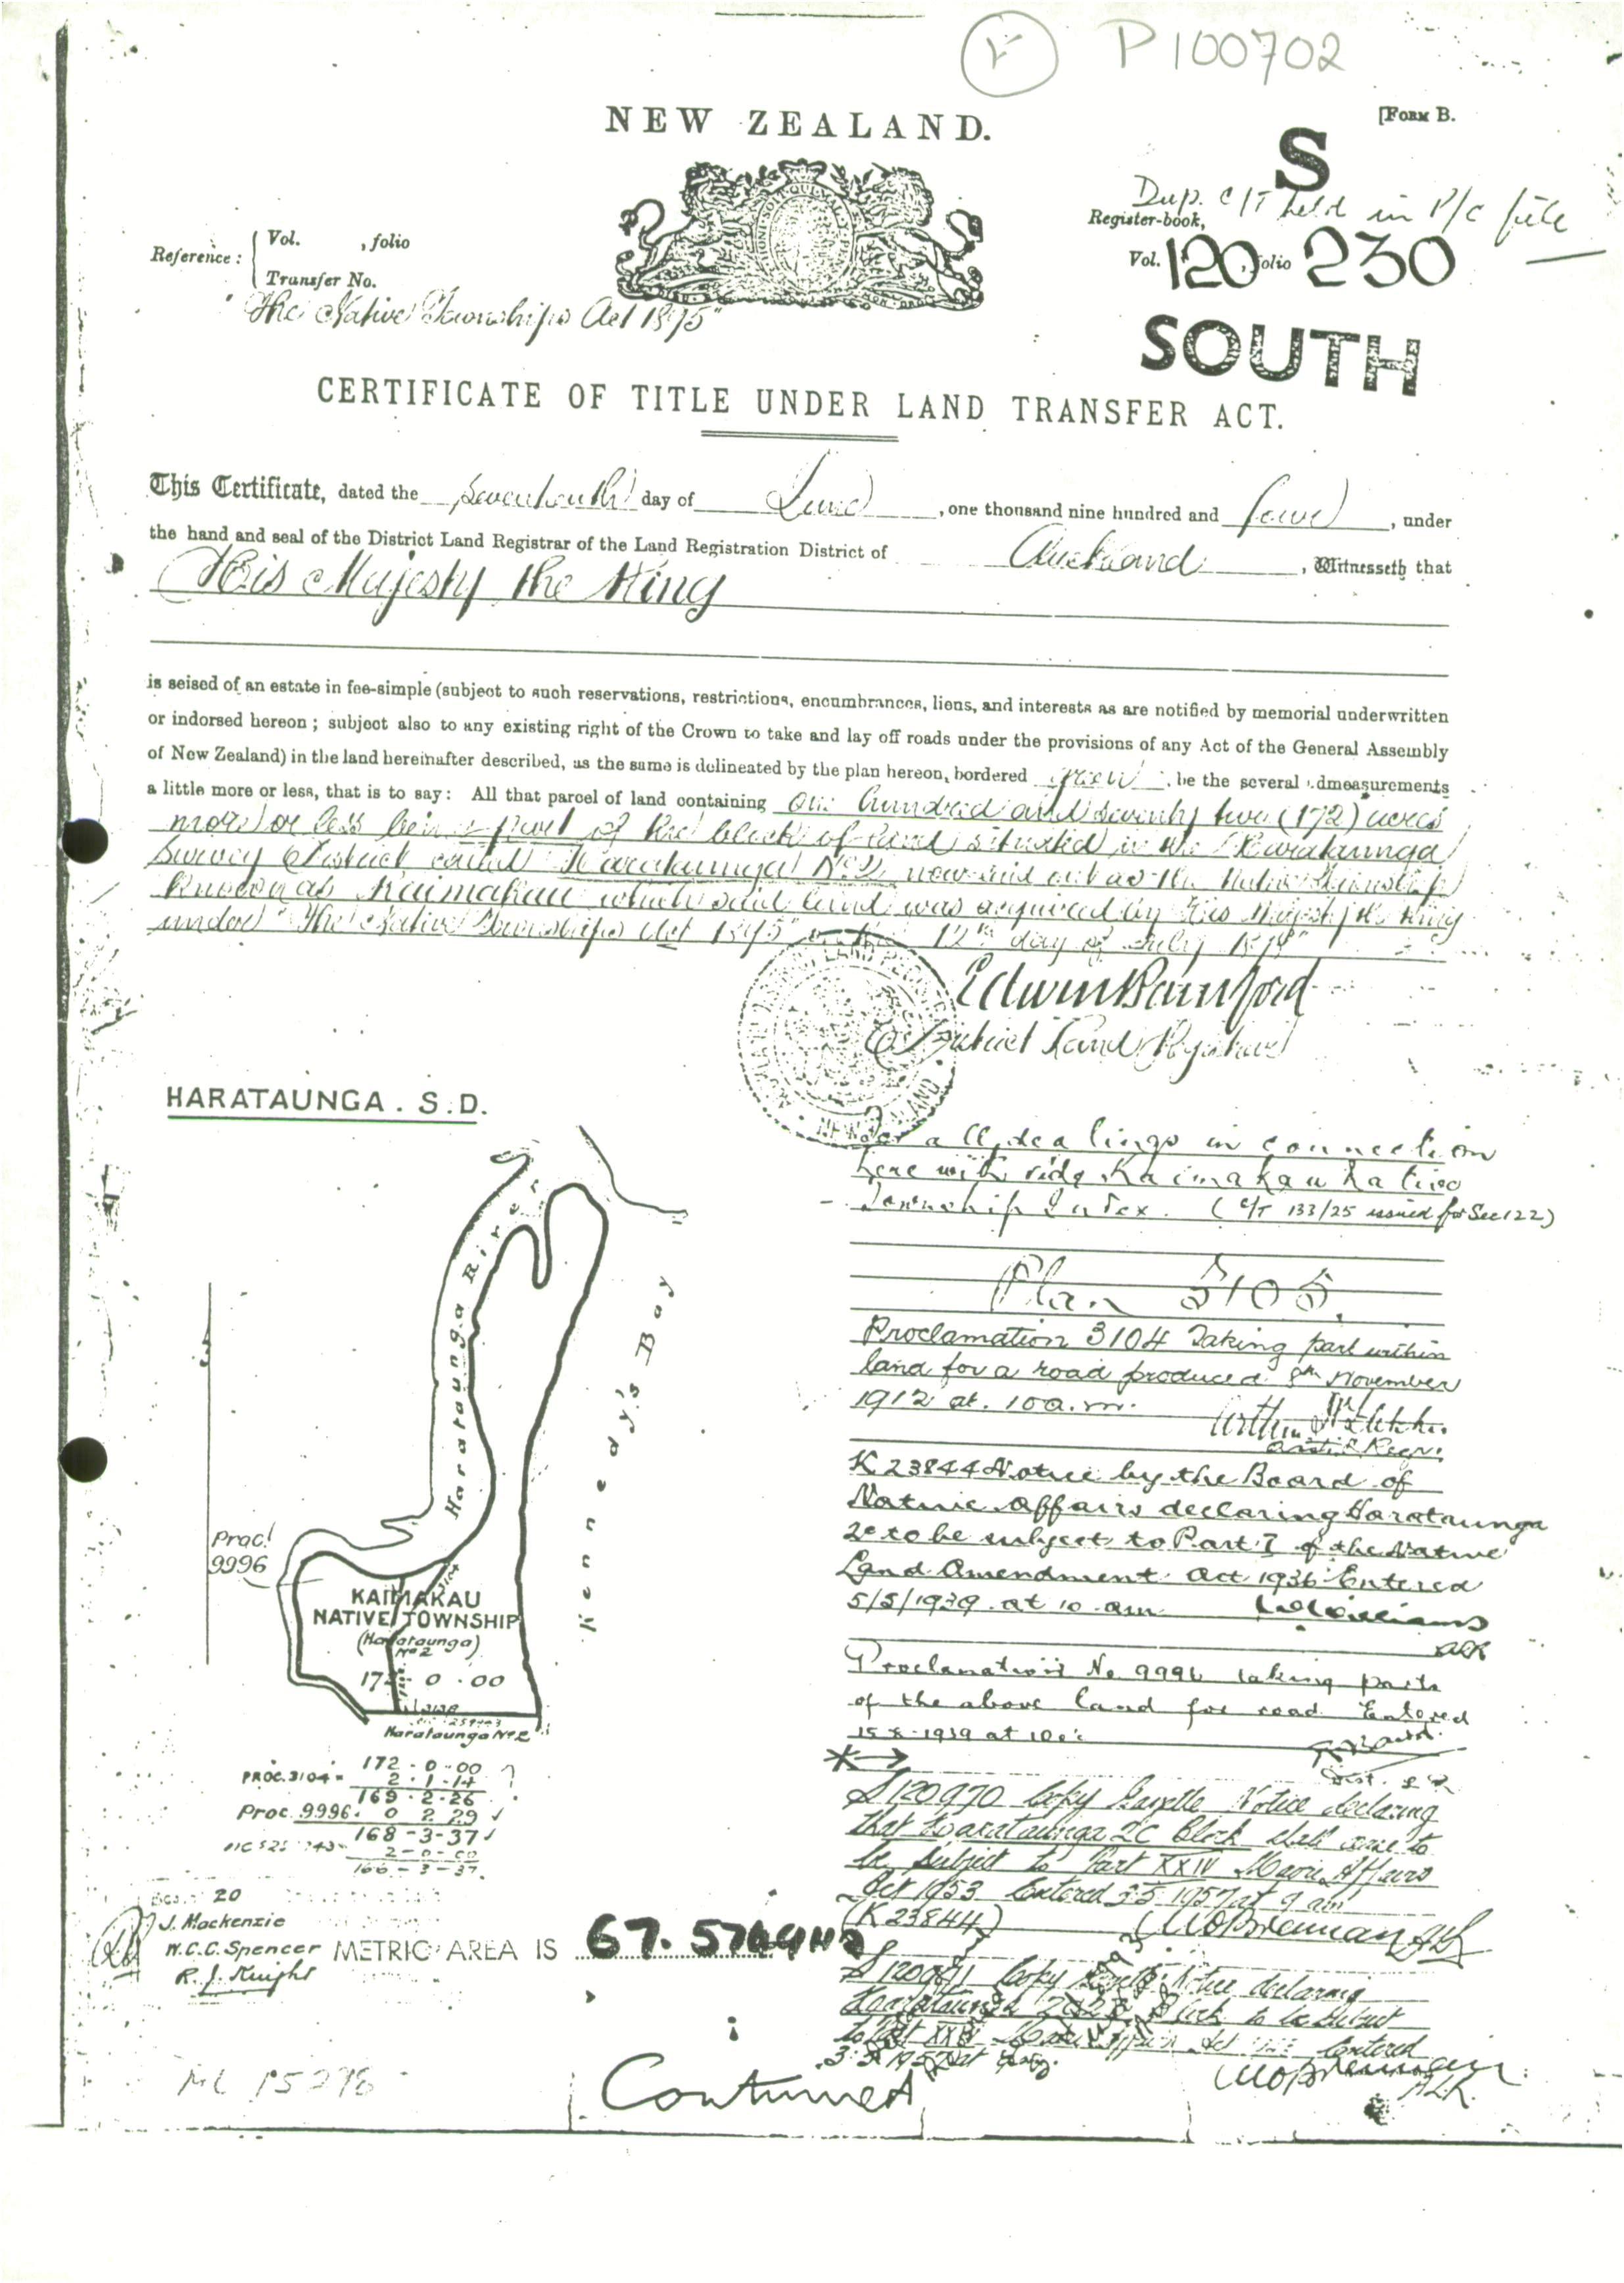 P100702
NEW ZEALAND.
[FORM B.
S
Dup. C/T held in P/C file
Register-book,
Vol. 120, folio 230
SOUTH
Reference: { Vol. , folio
Transfer No.
"The Native Townships Act 1895"
CERTIFICATE OF TITLE UNDER LAND TRANSFER ACT.
This Certificate, dated the seventeenth day of June, one thousand nine hundred and four, under
the hand and seal of the District Land Registrar of the Land Registration District of Auckland, Witnesseth that
His Majesty the King
is seised of an estate in fee-simple (subject to such reservations, restrictions, encumbrances, liens, and interests as are notified by memorial underwritten
or indorsed hereon; subject also to any existing right of the Crown to take and lay off roads under the provisions of any Act of the General Assembly
of New Zealand) in the land hereinafter described, as the same is delineated by the plan hereon, bordered green, be the several admeasurements
a little more or less, that is to say: All that parcel of land containing one hundred and seventy two (172) acres
more or less being part of the block of land situated in the Harataunga
Survey District called Harataunga No 2 now laid out as the Native Township
known as Kaimakau which said land was acquired by His Majesty the King
under "The Native Townships Act 1895" on the 12th day of July
Edwin Bamford
District Land Registrar
HARATAUNGA . S.D.
For all dealings in connection
herewith vide Kaimakau Native
Township Index. (C/T 133/25 issued for Sec 122)
Plan 3105.
Proclamation 3104 Taking part within
land for a road produced 8th November
1912 at. 10 a.m.
K 23844 Notice by the Board of
Native Affairs declaring Harataunga
2c to be subject to Part I of the Native
Land Amendment Act 1936 Entered
5/5/1939 at 10 am
ALR
Proclamation No 9996 taking parts
of the above land for road Entered
15-8-1939 at 10 o'c
Dist. L R
S120970 Copy Gazette Notice declaring
that Harataunga 2C Block shall cease to
be subject to Part XXIV Maori Affairs
Act 1953 Entered 3.5.1957 at 9 am
(K 23844)
WOBrennan ALR
S120971 Copy Gazette Notice declaring
Harataunga Block to be subject
to Part XXIV Maori Affairs Act Entered
3.5.1957 at
WOBrennan
ALR.
Harataunga River
Kennedy's Bay
Procl
9996
3104
KAIMAKAU
NATIVE TOWNSHIP
(Harataunga)
No 2
172 . 0 . 00
Harataunga No 2
172 . 0 . 00
PROC. 3104 = 2 . 1 . 14
169 . 2 . 26
Proc. 9996. 0 2 29
168 - 3 - 37
2 - 0 - 00
166 - 3 - 37.
20
J. Mackenzie
W.C.C. Spencer
R. J. Knight
METRIC AREA IS 67.5764 HA
ML 15278
Continued